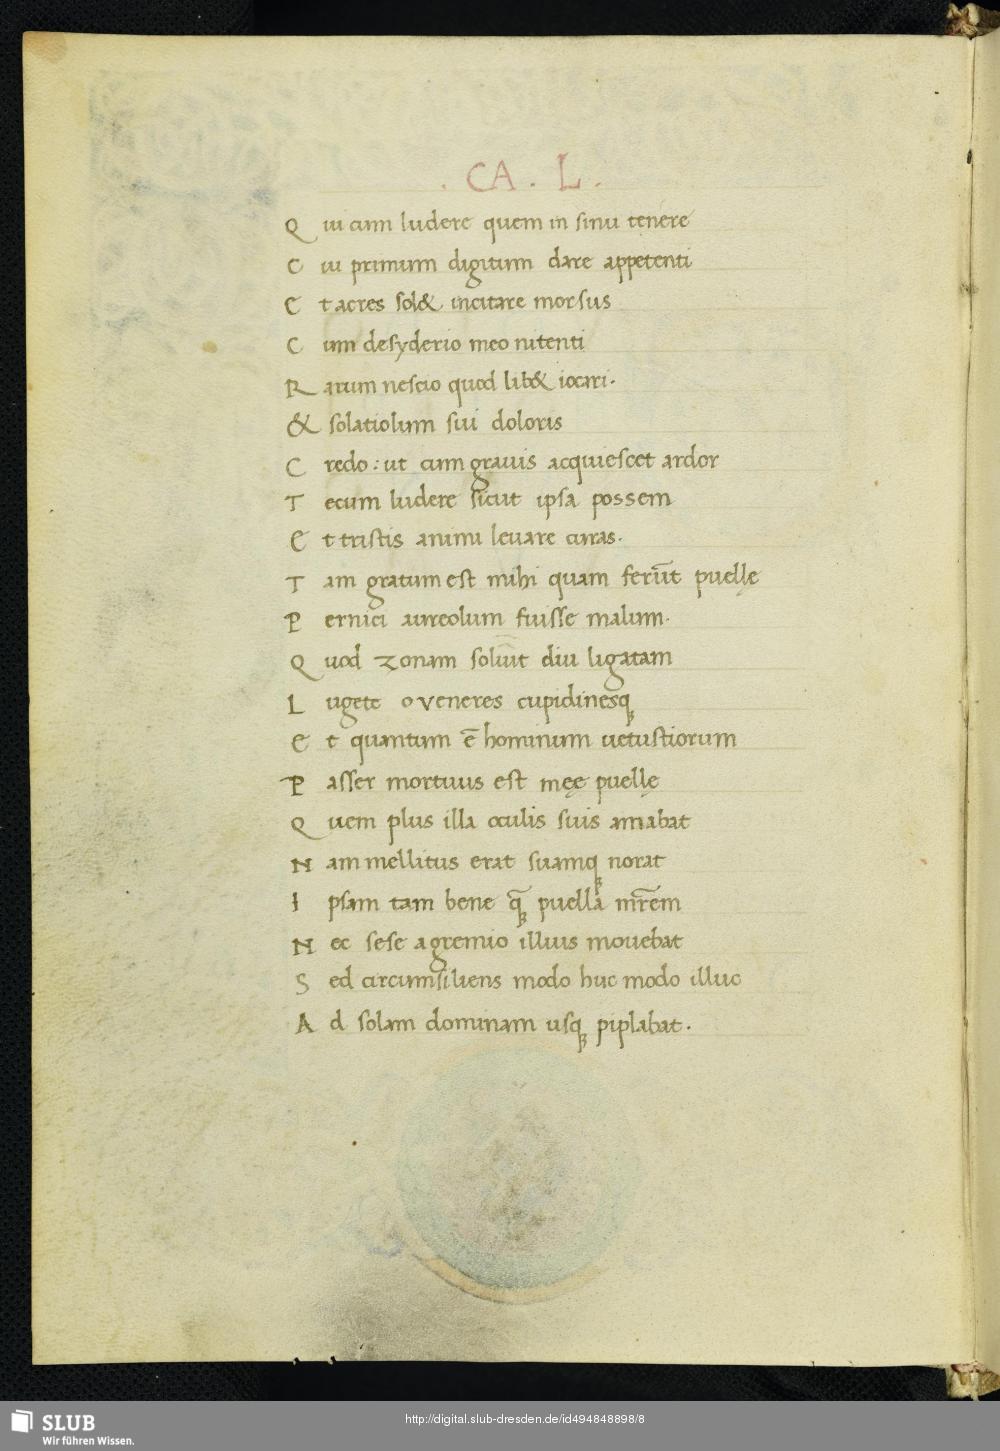 . CA . L .
Qui cum ludere quem in sinu tenere
Cui primum digitum dare appetenti
Et acres sol& incitare morsus
Cum desyderio meo nitenti
Rarum nescio quod lib& iocari.
& solatiolum sui doloris
Credo: ut cum grauis acquiescet ardor
Tecum ludere sicut ipsa possem
Et tristis animi leuare curas.
Tam gratum est mihi quam ferūt puellę
Pernici aureolum fuisse malum.
Quod zonam soluīt diu ligatam
Lugete o veneres cupidinesq
Et quantum ē hominum uetustiorum
Passer mortuus est męe puellę
Quem plus illa oculis suis amabat
Nam mellitus erat suamq norat
Ipsam tam bene q̄ puella mr̄em
Nec sese a gremio illius mouebat
Sed circumsiliens modo huc modo illuc
Ad solam dominam usq piplabat.
SLUB
Wir führen Wissen.
http://digital.slub-dresden.de/id494848898/8